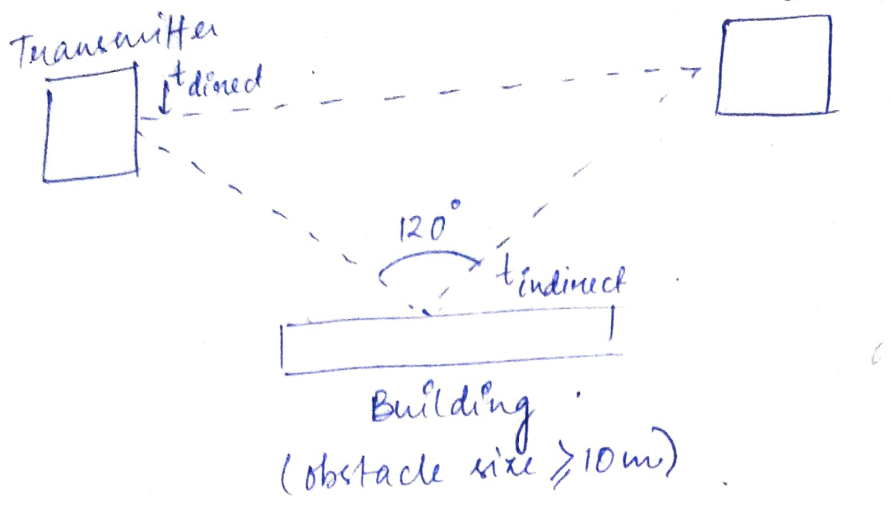 Transmitter
t direct
120°
t indirect
Building
(obstacle size ≥ 10m)